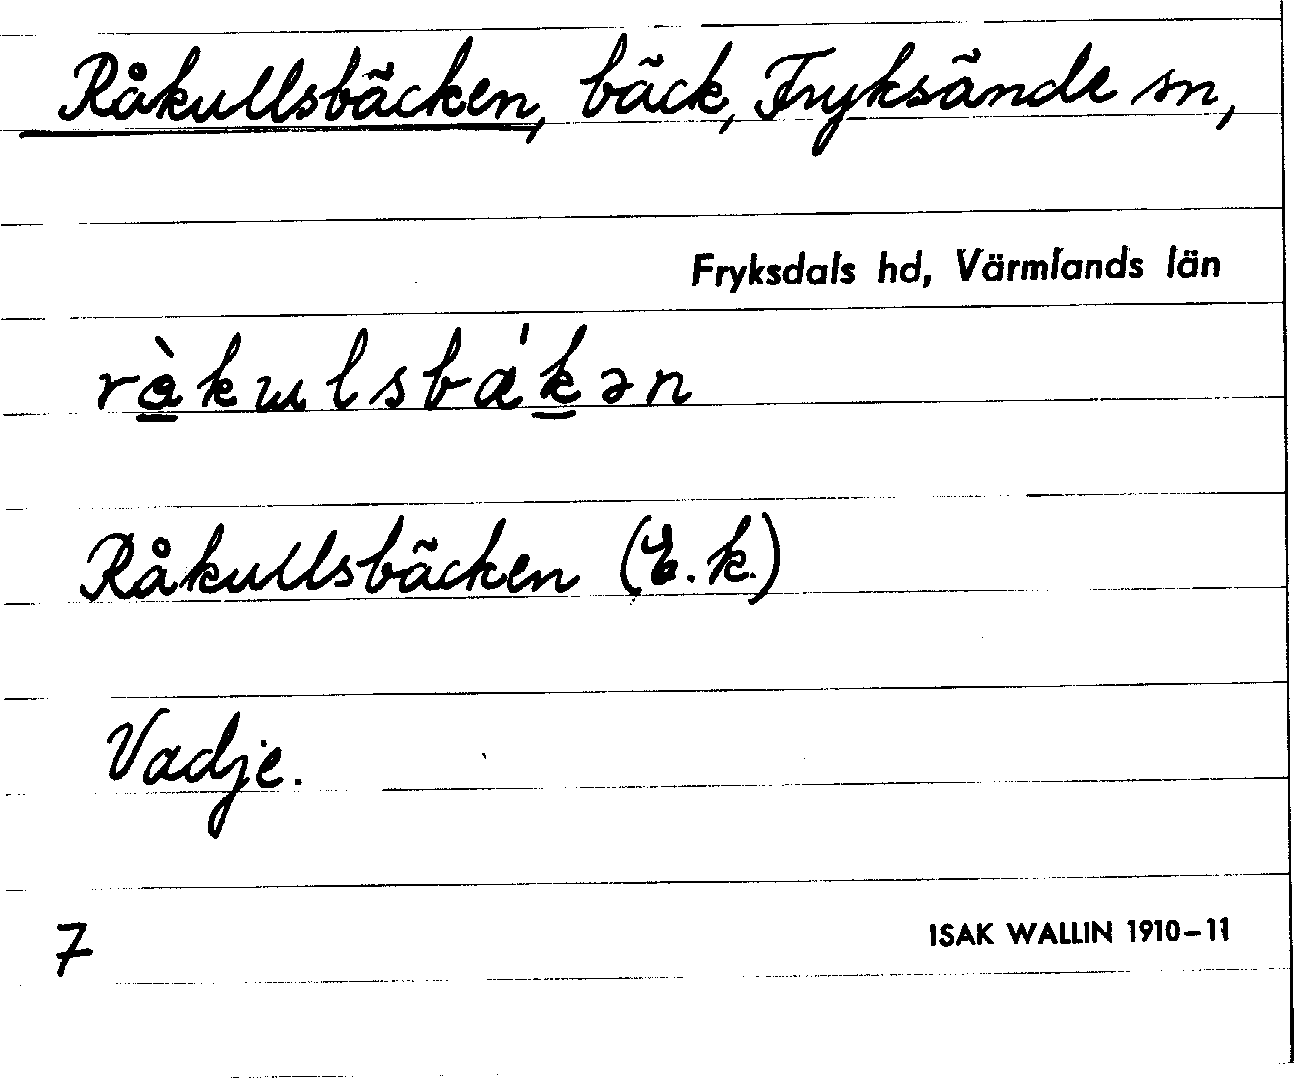 Råkullsbäcken, bäck, Fryksände sn,
Fryksdals hd, Värmlands län
Råkullsbäcken (E.k.)
Vadje.
7
ISAK WALLIN 1910–11